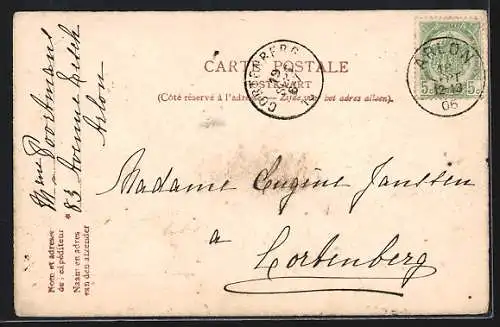 CARTE POSTALE
POSTKAART
(Côté réservé à l'adresse — Zijde van het adres alleen.)
CORTENBERG
19
ARLON
SEPT
12-13
06
5c 5c
Madame Eugène Janssen
a
Cortenberg
Mme Poortmans
83 Avenue
Arlon
Nom et adresse
de l'expéditeur
Naam en adres
van den afzender